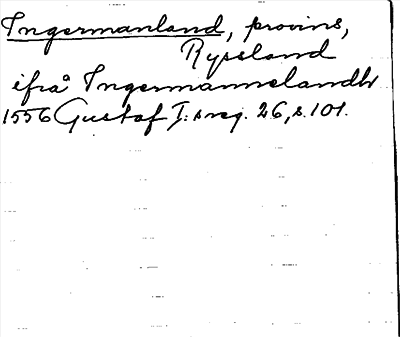 Ingermanland, provins,
Ryssland
ifrå Ingermannelandh
1556 Gustaf I: s reg. 26, s. 101.